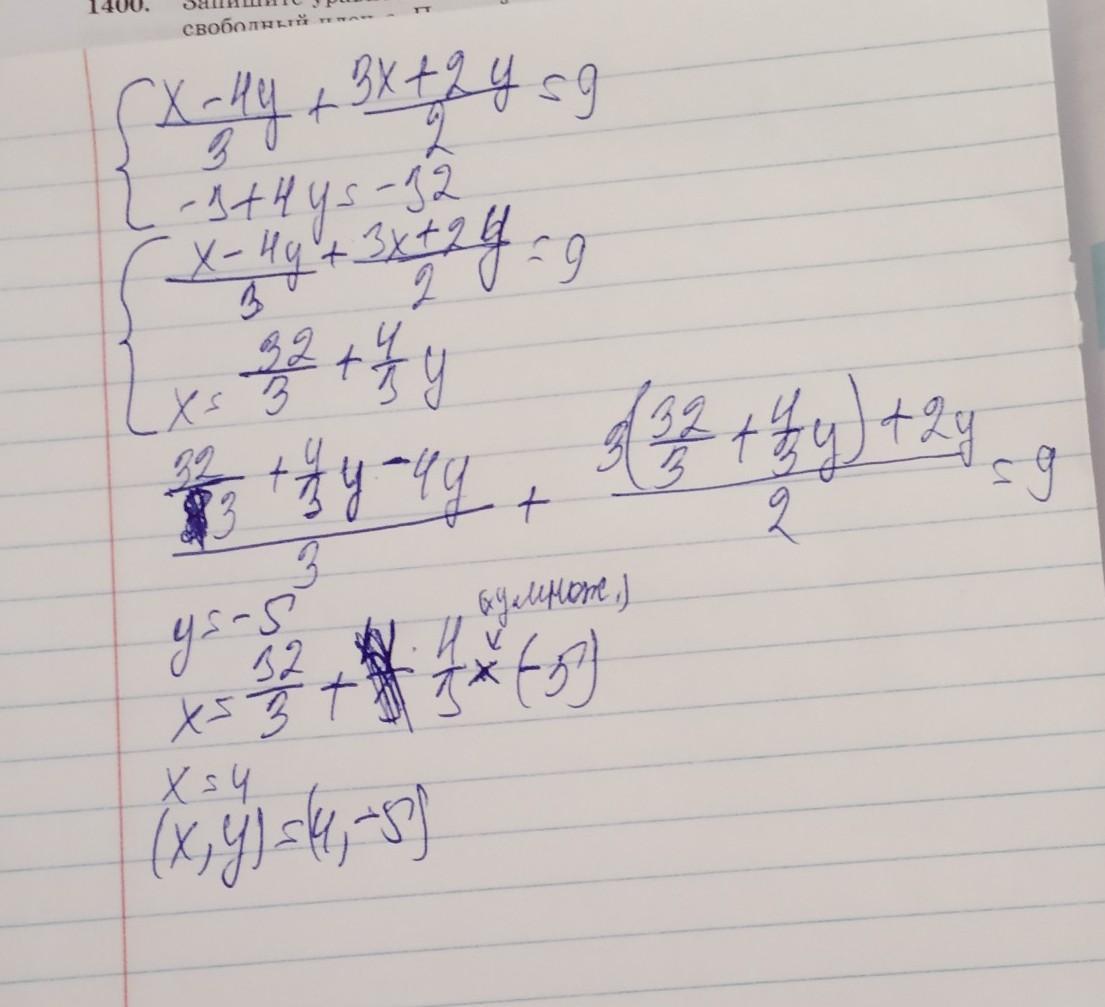 1400. Запишите
свободный
{ (x-4y)/3 + (3x+2y)/2 = 9
-3+4y = -32
{ (x-4y)/3 + (3x+2y)/2 = 9
x = 32/3 + 4/3 y
(32/3 + 4/3 y - 4y)/3 + (3(32/3 + 4/3 y) + 2y)/2 = 9
y = -5
(умнож.)
x = 32/3 + 4/3 × (-5)
x = 4
(x, y) = (4, -5)